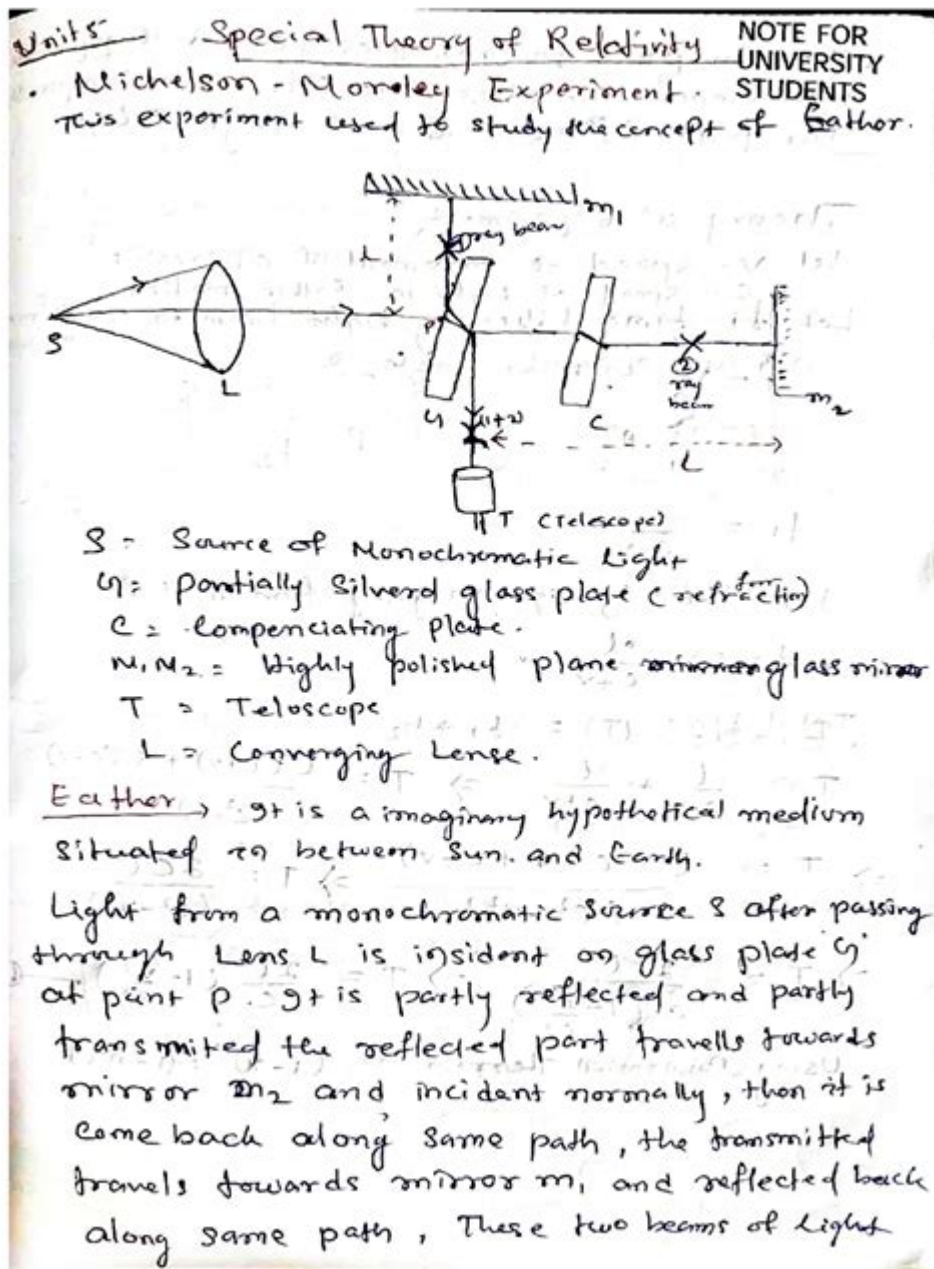 Unit 5
Special Theory of Relativity
NOTE FOR
UNIVERSITY
STUDENTS
. Michelson - Moreley Experiment.
This experiment used to study the concept of Eathor.
m1
① ray beam
L
P
S
L
G
(1+2)
C
② ray beam
m2
L
T (Telescope)
S = Source of Monochromatic Light
G = Partially Silverd glass plate (for refraction)
C = Compenciating plate.
M1 M2 = Highly polished plane glass mirror
T = Teloscope
L = Converging Lense.
Eather → It is a imaginary hypothetical medium
situated in between Sun and Earth.
Light from a monochromatic source S after passing
through Lens L is insident on glass plate 'G'
at point P. It is partly reflected and partly
transmited the reflected part travells towards
mirror m2 and incident normally, then it is
come back along same path, the transmitted
travels towards mirror m1 and reflected back
along same path, These two beams of Light